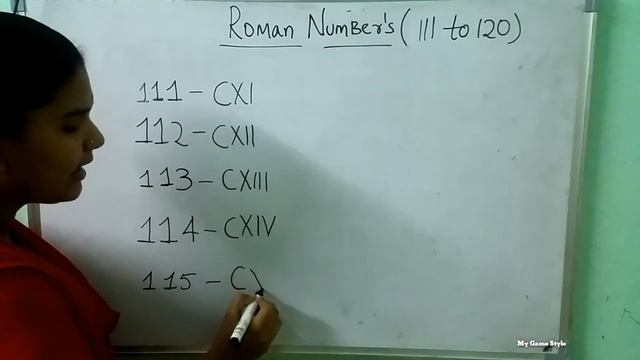 Roman Number's (111 to 120)
111 - CXI
112 - CXII
113 - CXIII
114 - CXIV
115 - C
My Game Style